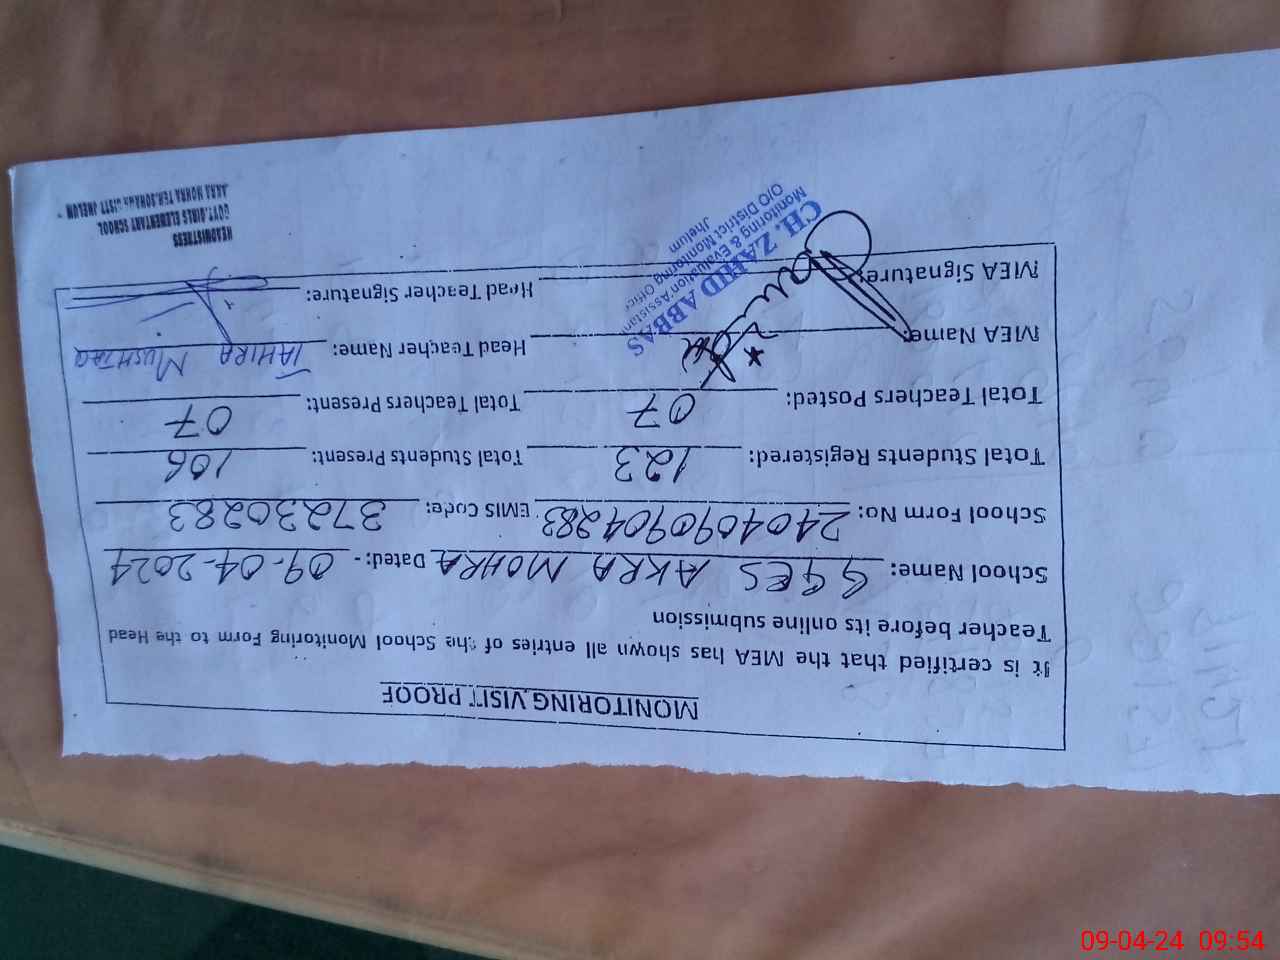 MONITORING VISIT PROOF
It is certified that the MEA has shown all entries of the School Monitoring Form to the Head
Teacher before its online submission
School Name: GGES AKRA MOHRA Dated:- 09-04-2024
School Form No: 2404090904283 EMIS Code: 37230283
Total Students Registered: 123 Total Students Present: 106
Total Teachers Posted: 07 Total Teachers Present: 07
MEA Name: Head Teacher Name: TAHIRA MUSHTAQ
MEA Signature: Head Teacher Signature:
CH. ZAHID ABBAS
Monitoring & Evaluation Assistant
O/O District Monitoring Office
Jhelum
HEADMISTRESS
GOVT.GIRLS ELEMENTARY SCHOOL
AKRA MOHRA TEH.SOHAWA DISTT JHELUM
09-04-24 09:54